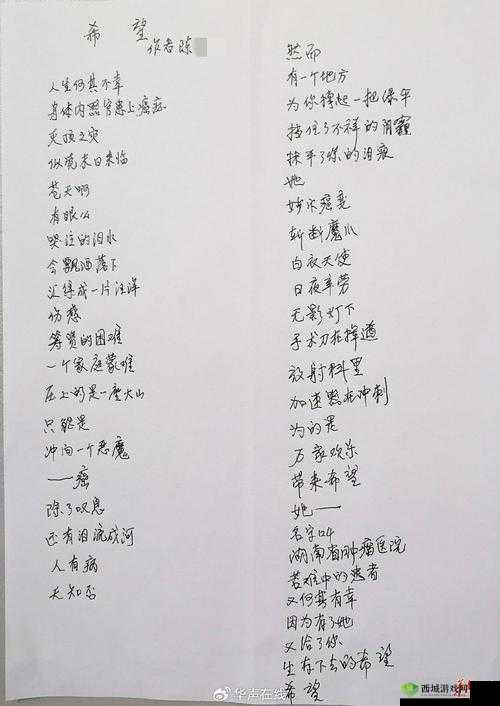 希望
作者陈
人生何其不幸
身体内器官患上癌症
灭顶之灾
似境末日来临
苍天啊
有眼么
哭泣的泪水
令飘洒落下
汇集成一片汪洋
伤感
筹资的困难
一个家庭蒙难
压上的是一座大山
只能是
冲向一个恶魔
——癌
除了叹息
还有泪流成河
人有病
天知否
然而
有一个地方
为你撑起一把保
挡住了不祥的阴霾
抹平了你的泪痕
她
斩断魔爪
白衣天使
日夜辛劳
无影灯下
手术刀在掸道
放射科里
加速器在冲刺
为的是
万家欢乐
带来希望
她——
名字叫
湖南省肿瘤医院
苦难中的患者
又何其有幸
因为有了她
又给了你
生存下去的希望
希望
@华声在线
西城游戏网